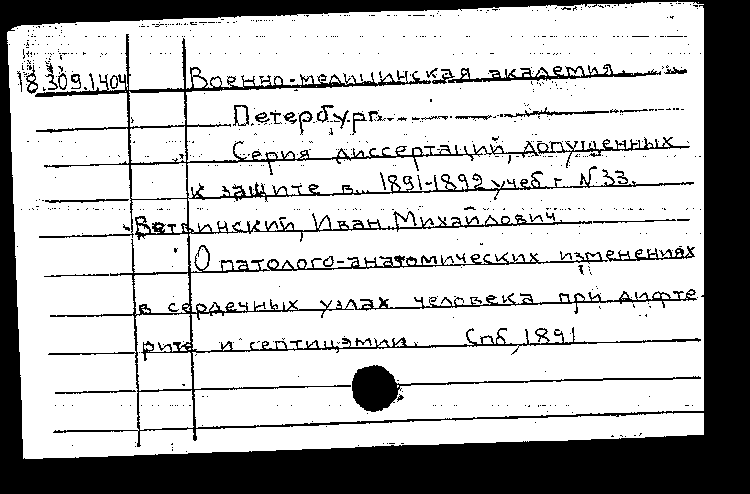 18.309.1.404 Военно-медицинская академия.
Петербург.
Серия диссертаций, допущенных
к защите в 1891-1892 учеб. г. N 33.
Ветвинский, Иван Михайлович.
О патолого-анатомических изменениях
в сердечных узлах человека при дифте-
рите и септицэмии. Спб, 1891